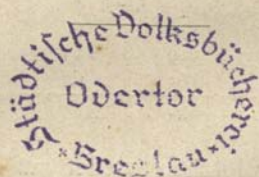 Städtische Volksbücherei
Odertor
*Breslau*